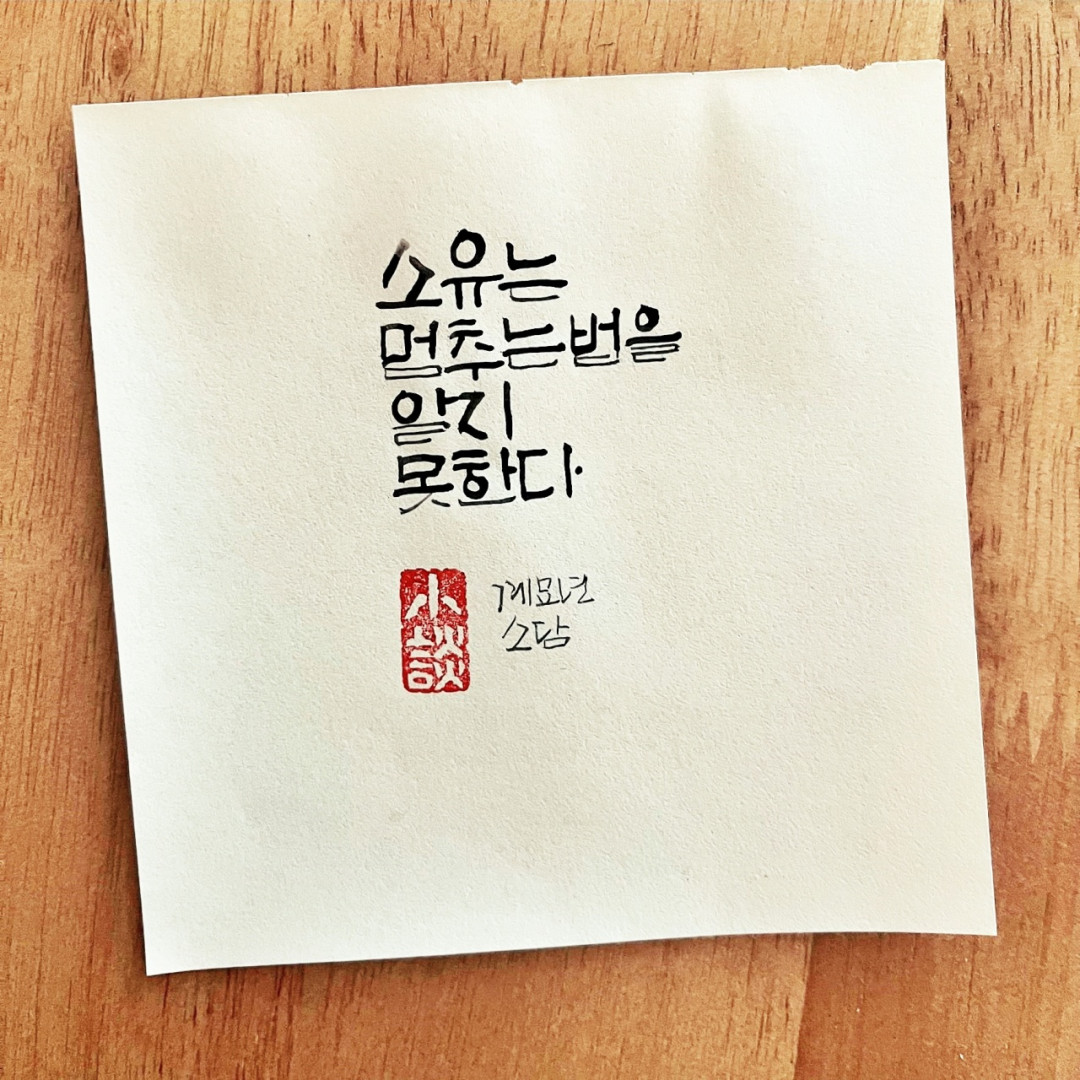 소유는
멈추는법을
알지
못한다
小談
계묘년
소담